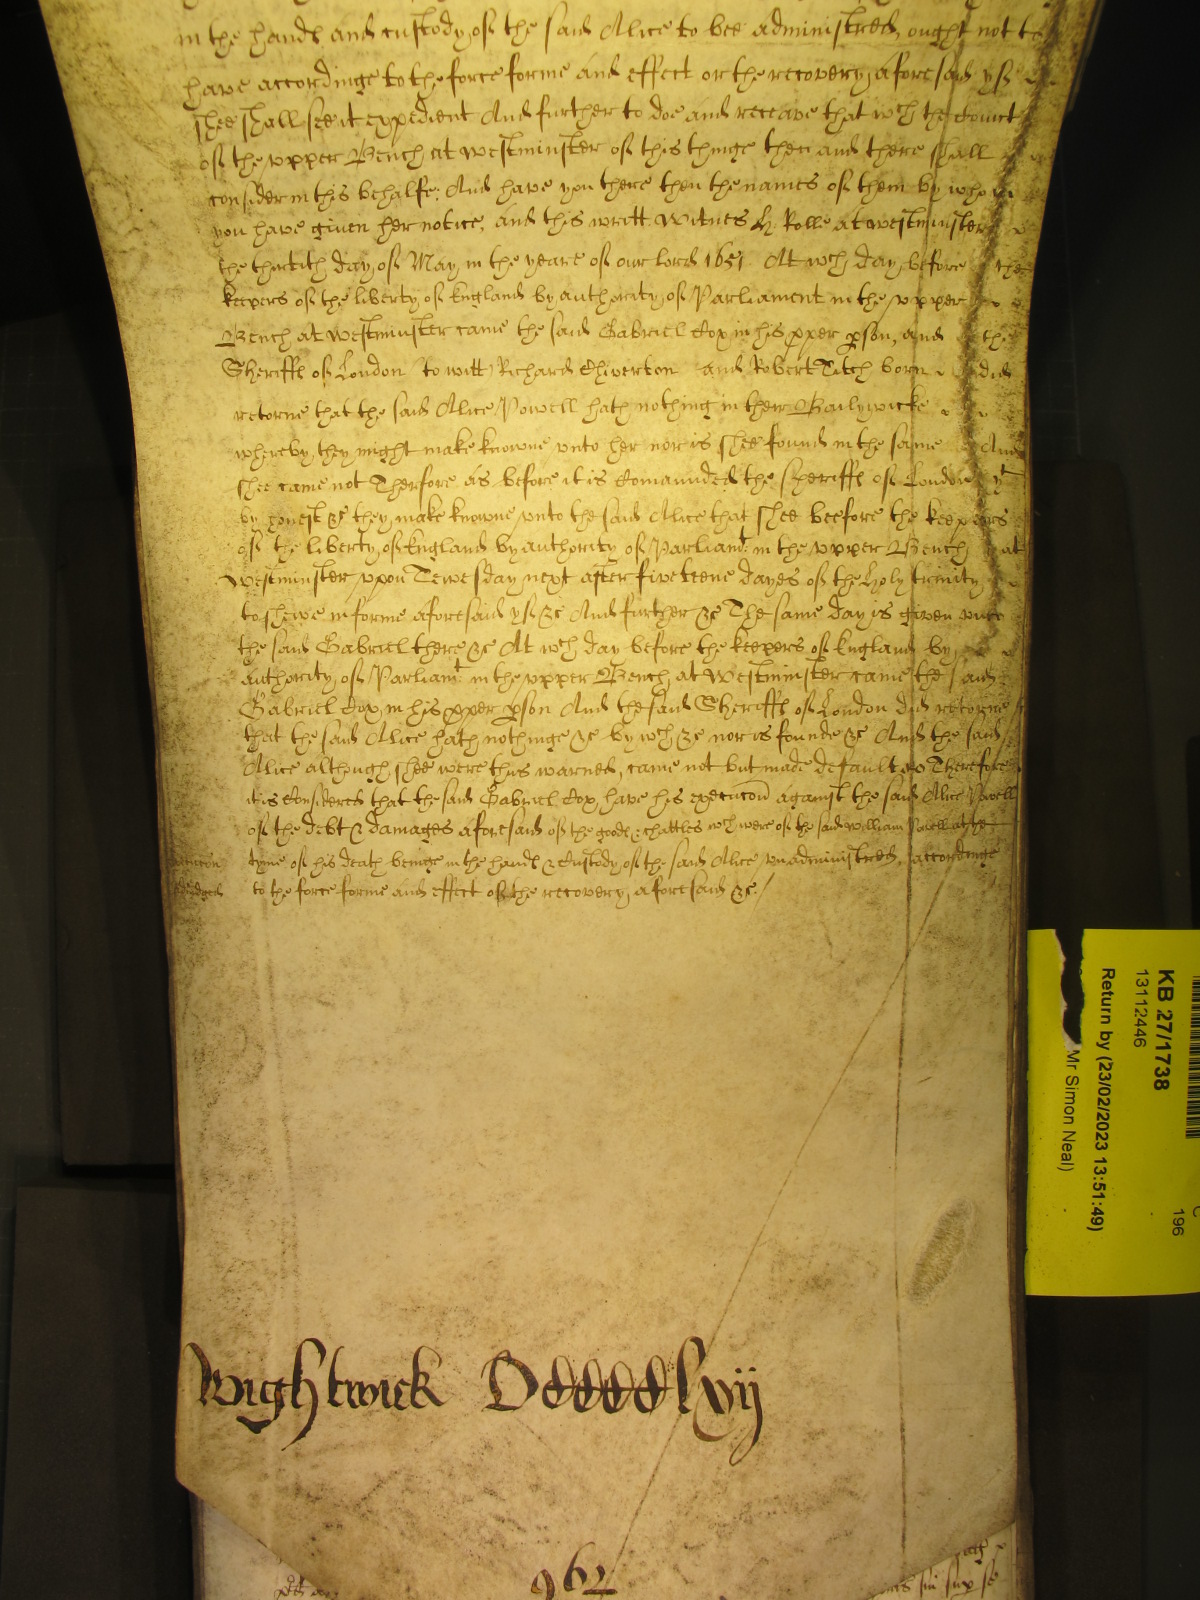 in the hands and custody of the said Alice to bee administred, ought not to
have accordinge to the force forme and effect or the recovery aforesaid yf
shee shall see it expedient And further to doe and receave that wch the Court
of the upper Bench at westminster of this thinge then and there shall
consider in this behalfe: And have you there then the names of them by whom
you have given her notice, and this writt. Witnes H. Rolle at westminster
the thirtith day of May in the yeare of our lord 1651. At wch day before the
keepers of the liberty of England by authority of Parliament in the upper
Bench at westminster came the said Gabriel Cox in his pper pson, and the
Sheriffs of London to witt Richard Chiverton and Robert Titchborn did
retorne that the said Alice Powell hath nothing in their Bailywicke
whereby they might make knowne unto her nor is shee found in the same And
shee came not Therfore as before it is Comaunded the sheriffs of London yt
by honest &c they make knowne unto the said Alice that shee beefore the keepers
of the liberty of England by authority of Parliamt in the upper Bench at
westminster upon Tewesday next after fiveteene dayes of the Holy trinity
to shewe in forme aforesaid yf &c And further &c The same day is given unto
the said Gabriel there &c At wch day before the keepers of England by
authority of Parliamt in the upper Bench at Westminster came the said
Gabriel Cox in his pper pson And the said Sheriffs of London did retorne
that the said Alice hath nothinge &c by wch &c nor is founde &c And the said
Alice although shee were thus warned, came not but made default Therefore
it is Considered that the said Gabriel Cox, have his execucon against the said Alice Powell
of the debt & damages aforesaid of the goods & chattles wch were of the said William Powell at the
tyme of his death beinge in the hands & Custody of the said Alice unadministred, accordinge
to the force forme and effect of the recovery aforesaid &c./
Wightwick DCCCClxij
962
KB 27/1738
13112446
Return by (23/02/2023 13:51:49)
Mr Simon Neal)
196